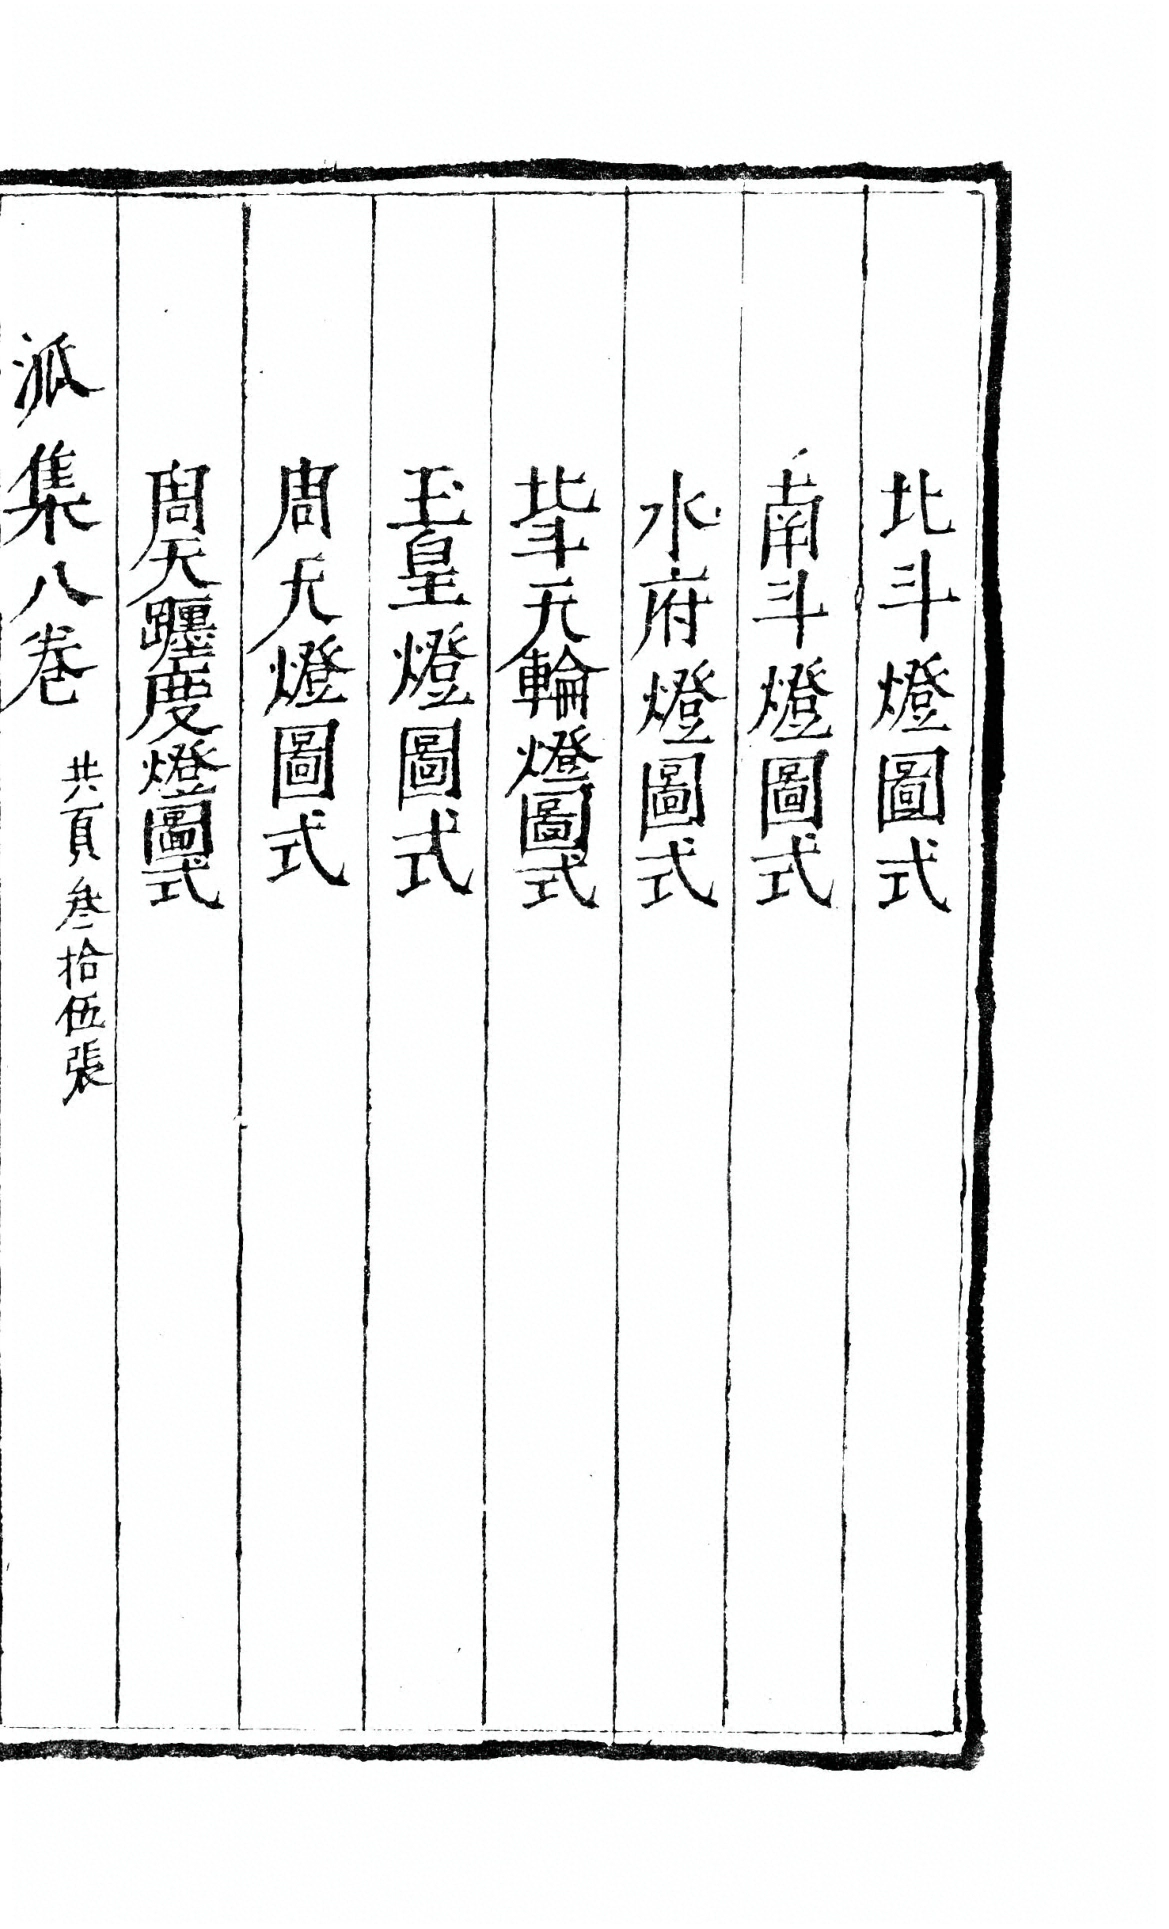 北斗燈圖式
南斗燈圖式
水府燈圖式
北斗天輪燈圖式
玉皇燈圖式
周天燈圖式
周天躔度燈圖式
派集八卷
共頁叁拾伍張